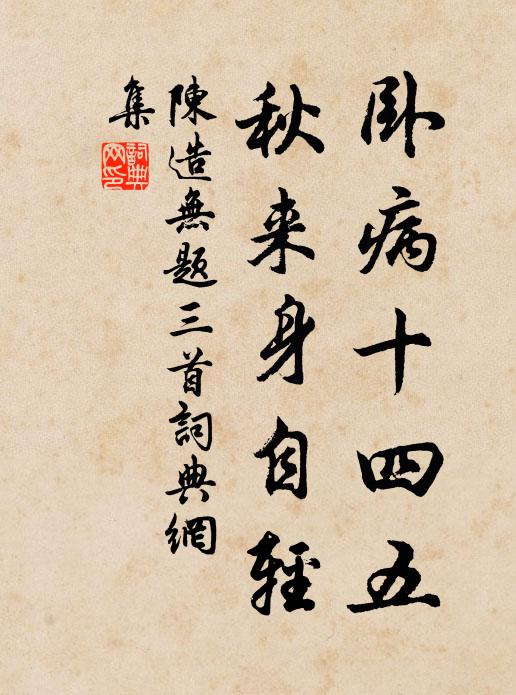 卧病十四五
秋来身自輕
陳造無題三首詞典網
集
詞典
网印